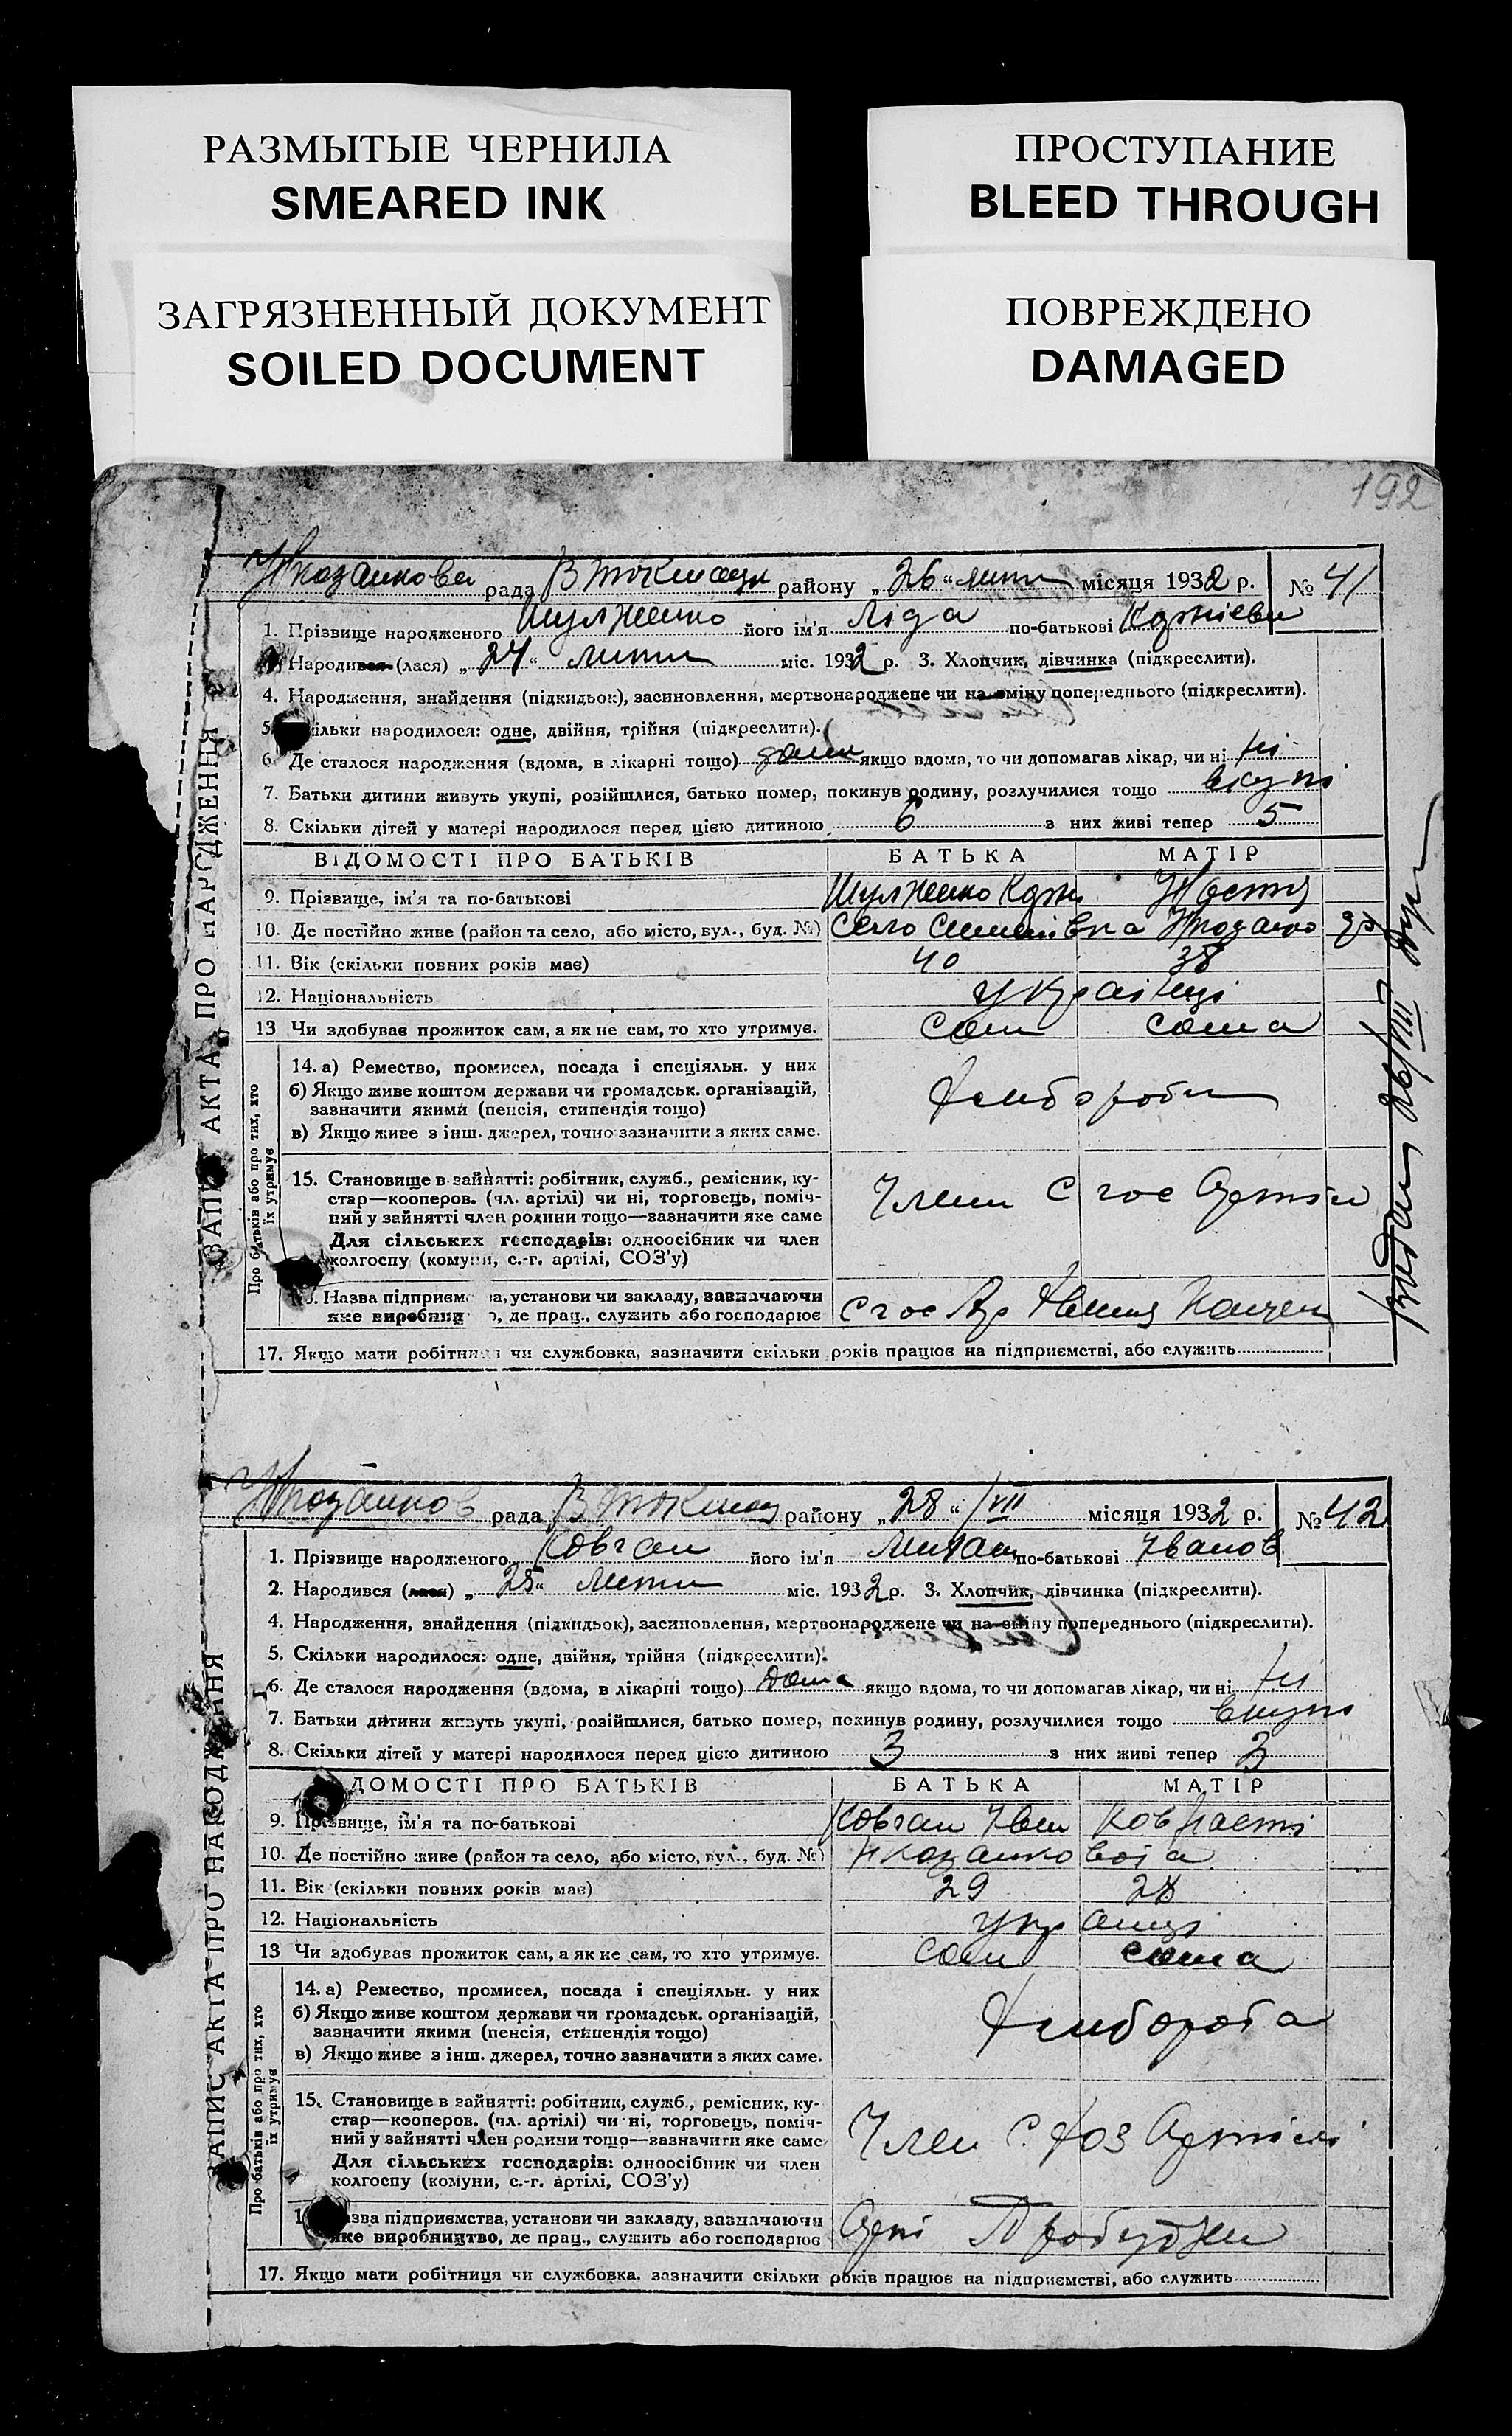 РАЗМЫТЫЕ ЧЕРНИЛА
SMEARED INK
ПРОСТУПАНИЕ
BLEED THROUGH
ЗАГРЯЗНЕННЫЙ ДОКУМЕНТ
SOILED DOCUMENT
ПОВРЕЖДЕНО
DAMAGED
192
рада В Токмац району „26“ лити місяця 1932 р. № 41
1. Прізвище народженого Шулженко його ім'я Ліда по-батькові
Народився (лася) „24“ лити міс. 1932 р. 3. Хлопчик, дівчинка (підкреслити).
4. Народження, знайдення (підкидьок), засиновлення, мертвонароджене чи на зміну попереднього (підкреслити).
5. ільки народилося: одне, двійня, трійня (підкреслити).
6. Де сталося народження (вдома, в лікарні тощо) дома якщо вдома, то чи допомагав лікар, чи ні ні
7. Батьки дитини живуть укупі, розійшлися, батько помер, покинув родину, розлучилися тощо вкупі
8. Скільки дітей у матері народилося перед цією дитиною 6 з них живі тепер 5
ВІДОМОСТІ ПРО БАТЬКІВ БАТЬКА МАТІР
9. Прізвище, ім'я та по-батькові Шулженко Настя
10. Де постійно живе (район та село, або місто, вул., буд. №) Село
11. Вік (скільки повних років має) 40 38
12. Національність українці
13 Чи здобуває прожиток сам, а як не сам, то хто утримує. сам сама
14. а) Ремество, промисел, посада і спеціяльн. у них
б) Якщо живе коштом держави чи громадськ. організацій,
зазначити якими (пенсія, стипендія тощо)
в) Якщо живе з інш. джерел, точно зазначити з яких саме.
Хлибороби
15. Становище в зайнятті: робітник, служб., ремісник, ку-
стар—кооперов. (чл. артілі) чи ні, торговець, поміч-
ний у зайнятті член родини тощо—зазначити яке саме
Для сільських господарів: одноосібник чи член
колгоспу (комуни, с.-г. артілі, СОЗ'у)
Члени С гос Артіли
Назва підприємства, установи чи закладу, зазначаючи
яке виробництво, де прац., служить або господарює
17. Якщо мати робітниця чи службовка, зазначити скільки років працює на підприємстві, або служить
ЗАПИС АКТА ПРО НАРОДЖЕННЯ
Про батьків або про тих, хто
їх утримує
рада В Токмац району „28“ /VIII місяця 1932 р. № 42
1. Прізвище народженого Ковган його ім'я по-батькові Іванов
2. Народився (лася) „25“ лити міс. 1932 р. 3. Хлопчик, дівчинка (підкреслити).
4. Народження, знайдення (підкидьок), засиновлення, мертвонароджене чи на зміну попереднього (підкреслити).
5. Скільки народилося: одне, двійня, трійня (підкреслити).
6. Де сталося народження (вдома, в лікарні тощо) дома якщо вдома, то чи допомагав лікар, чи ні ні
7. Батьки дитини живуть укупі, розійшлися, батько помер, покинув родину, розлучилися тощо вкупі
8. Скільки дітей у матері народилося перед цією дитиною 3 з них живі тепер 3
ДОМОСТІ ПРО БАТЬКІВ БАТЬКА МАТІР
9. Прізвище, ім'я та по-батькові Ковган Іван Ков Насті
10. Де постійно живе (район та село, або місто, вул., буд. №)
11. Вік (скільки повних років має) 29 28
12. Національність
13 Чи здобуває прожиток сам, а як не сам, то хто утримує. сам сама
14. а) Ремество, промисел, посада і спеціяльн. у них
б) Якщо живе коштом держави чи громадськ. організацій,
зазначити якими (пенсія, стипендія тощо)
в) Якщо живе з інш. джерел, точно зазначити з яких саме.
Хлибороба
15. Становище в зайнятті: робітник, служб., ремісник, ку-
стар—кооперов. (чл. артілі) чи ні, торговець, поміч-
ний у зайнятті член родини тощо—зазначити яке саме
Для сільських господарів: одноосібник чи член
колгоспу (комуни, с.-г. артілі, СОЗ'у)
Член С. Хоз Артілі
азва підприємства, установи чи закладу, зазначаючи
яке виробництво, де прац., служить або господарює
17. Якщо мати робітниця чи службовка, зазначити скільки років працює на підприємстві, або служить
ЗАПИС АКТА ПРО НАРОДЖЕННЯ
Про батьків або про тих, хто
їх утримує